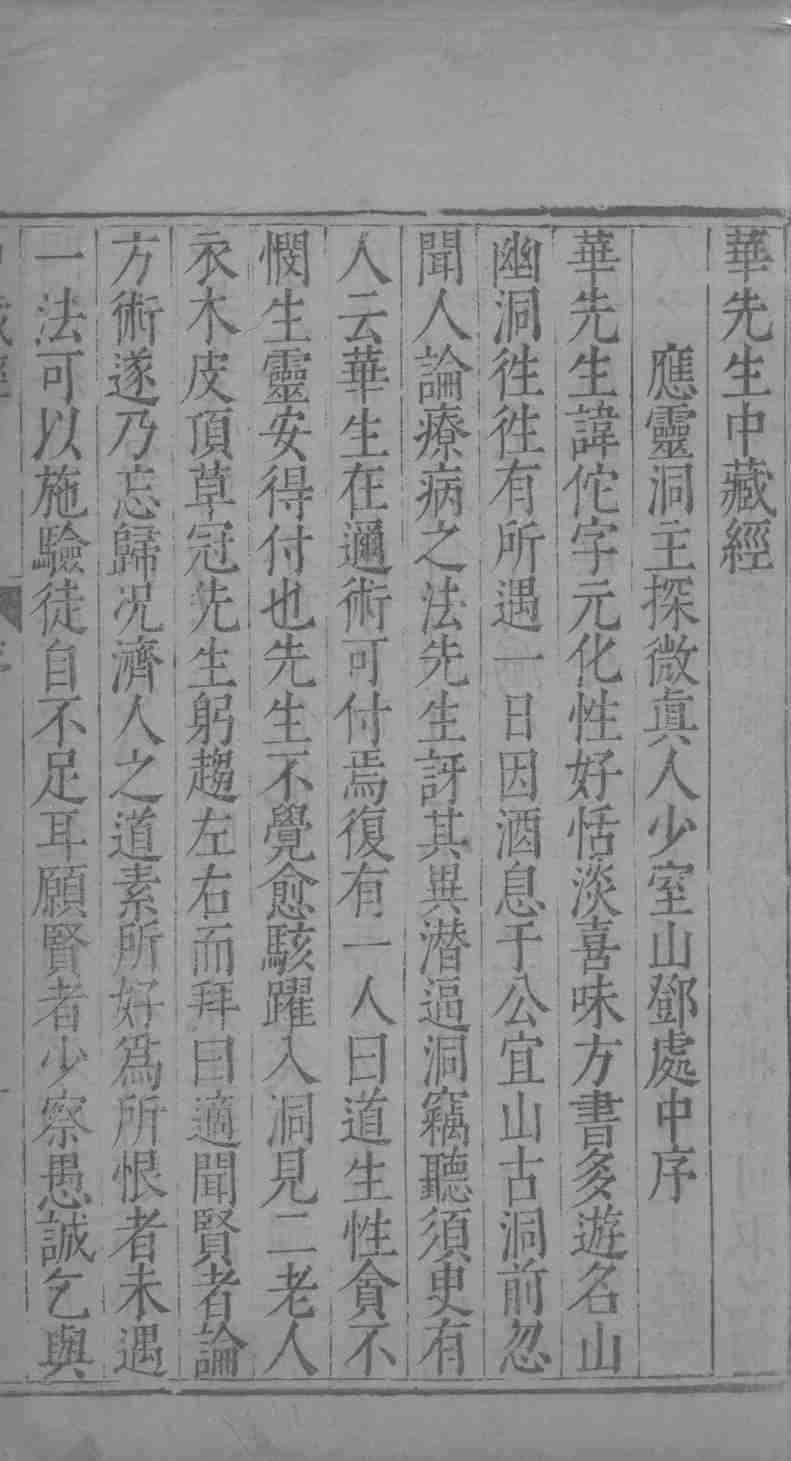 華先生中藏經
應靈洞主探微真人少室山鄧處中序
華先生諱佗字元化性好恬淡喜味方書多遊名山
幽洞徃徃有所遇一日因酒息于公宜山古洞前忽
聞人論療病之法先生訝其異潜逼洞竊聽須吏有
人云華生在邇術可付焉復有一人曰道生性貪不
憫生靈安得付也先生不覺愈駭躍入洞見二老人
衣木皮頂草冠先生躬趨左右而拜曰適聞賢者論
方術遂乃忘歸况濟人之道素所好爲所恨者未遇
一法可以施驗徒自不足耳願賢者少察愚誠乞與